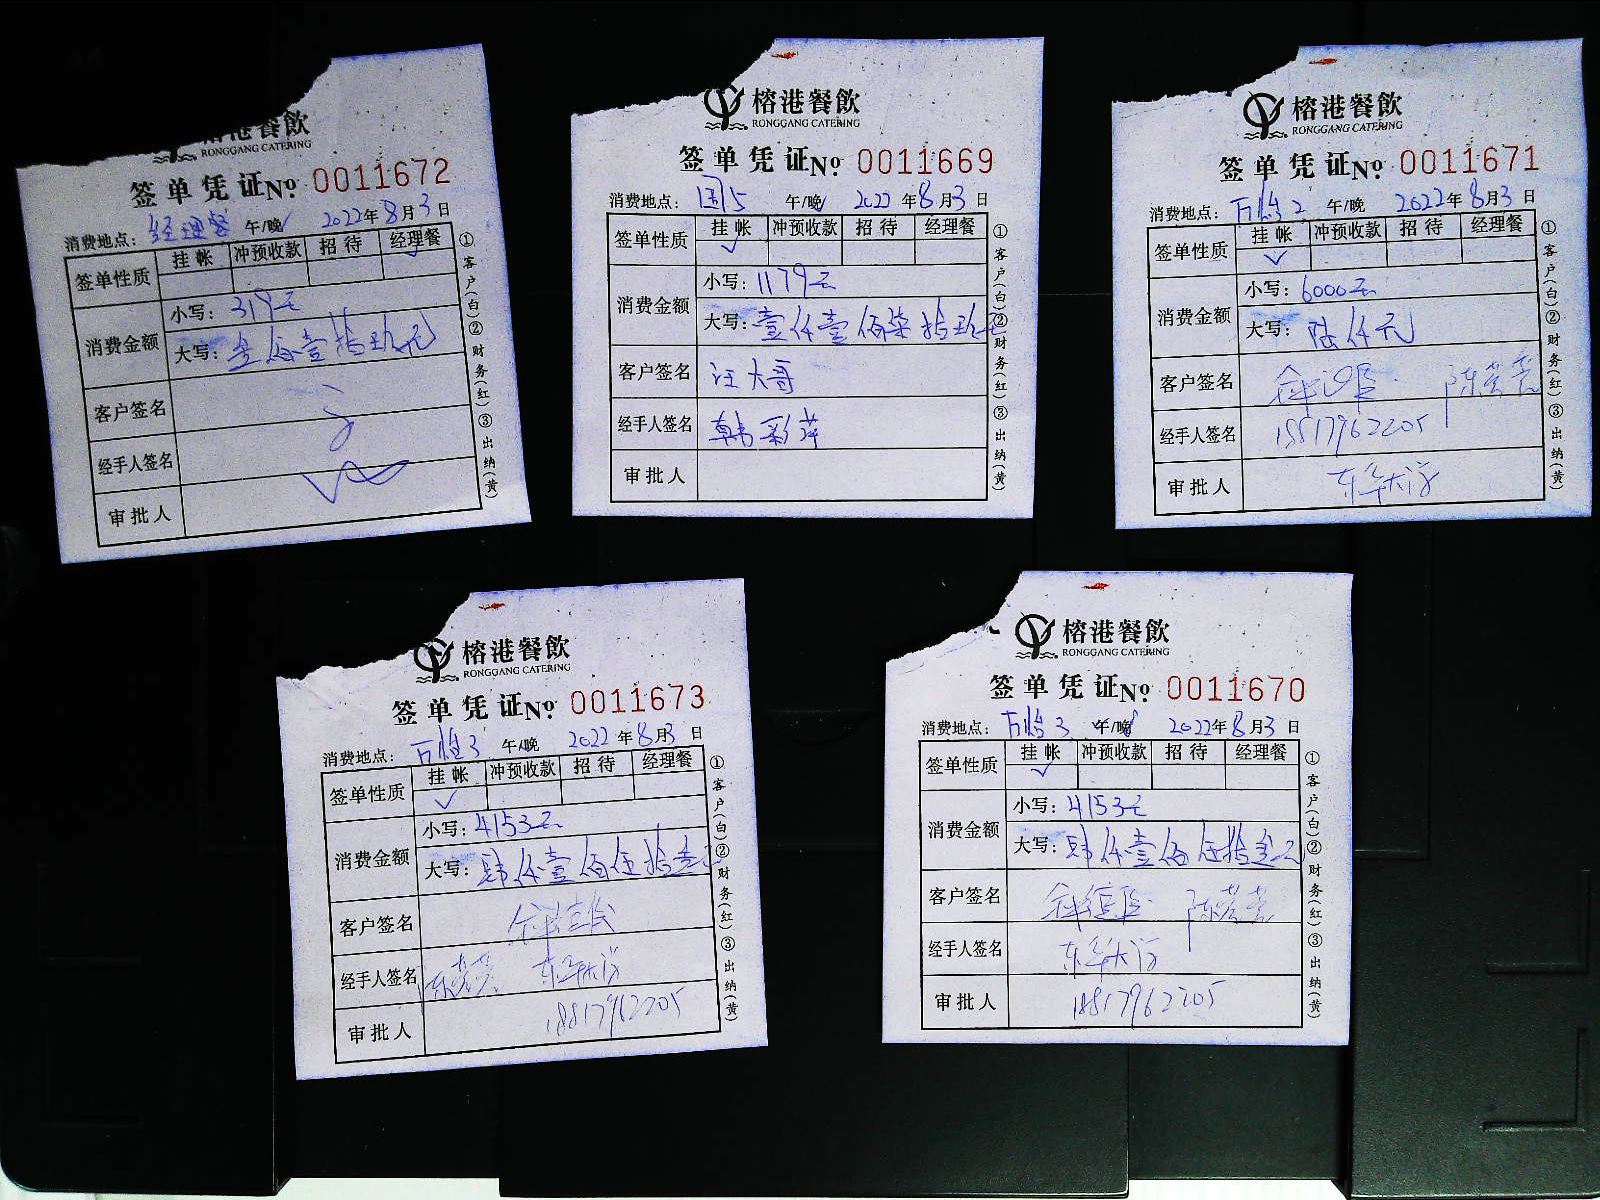 港餐飲
RONGGANG CATERING
签单凭证No. 0011672
消费地点: 经理餐 午/晚 2022年8月3日
签单性质 挂帐 冲预收款 招待 经理餐 ✓
消费金额 小写: 319元
大写: 叁佰壹拾玖元
客户签名
经手人签名
审批人
①客户(白)②财务(红)③出纳(黄)
榕港餐飲
RONGGANG CATERING
签单凭证No. 0011669
消费地点: 国5 午/晚 2022年8月3日
签单性质 挂帐 ✓ 冲预收款 招待 经理餐
消费金额 小写: 1179元
大写: 壹仟壹佰柒拾玖元
客户签名 汪大哥
经手人签名 韩彩萍
审批人
①客户(白)②财务(红)③出纳(黄)
榕港餐飲
RONGGANG CATERING
签单凭证No. 0011671
消费地点: 万怡2 午/晚 2022年8月3日
签单性质 挂帐 ✓ 冲预收款 招待 经理餐
消费金额 小写: 6000元
大写: 陆仟元
客户签名
经手人签名 18817962205
审批人 东华大河
①客户(白)②财务(红)③出纳(黄)
榕港餐飲
RONGGANG CATERING
签单凭证No. 0011673
消费地点: 万怡3 午/晚 2022年8月3日
签单性质 挂帐 ✓ 冲预收款 招待 经理餐
消费金额 小写: 4153元
大写: 肆仟壹佰伍拾叁元
客户签名
经手人签名
审批人 18817962205
①客户(白)②财务(红)③出纳(黄)
榕港餐飲
RONGGANG CATERING
签单凭证No. 0011670
消费地点: 万怡3 午/晚 2022年8月3日
签单性质 挂帐 ✓ 冲预收款 招待 经理餐
消费金额 小写: 4153元
大写: 肆仟壹佰伍拾叁元
客户签名
经手人签名
审批人 18817962205
①客户(白)②财务(红)③出纳(黄)